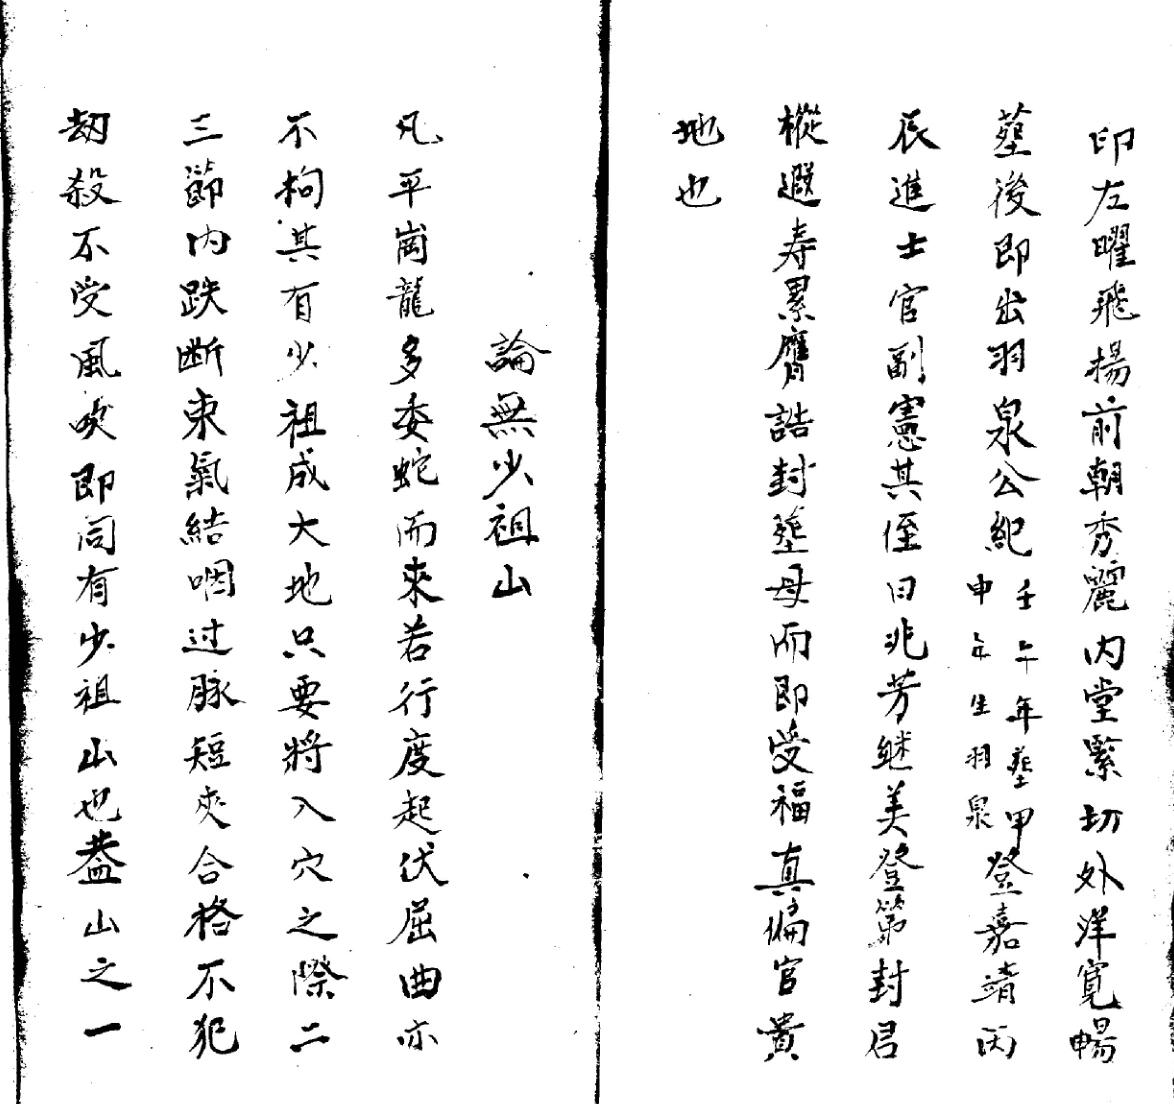 印左曜飛揚前朝秀麗内堂緊切外洋寛暢
塟後即出羽泉公紀壬午年塟甲申年生羽泉登嘉靖丙
辰進士官副憲其侄曰兆芳継美登第封君
樅遐寿累膺誥封塟母而即受福真偏官貴
地也
論無少祖山
凡平崗龍多委蛇而來若行度起伏屈曲亦
不拘其有少祖成大地只要將入穴之際二
三節内跌断束氣結咽过脉短夾合格不犯
劫殺不受風吹即同有少祖山也葢山之一